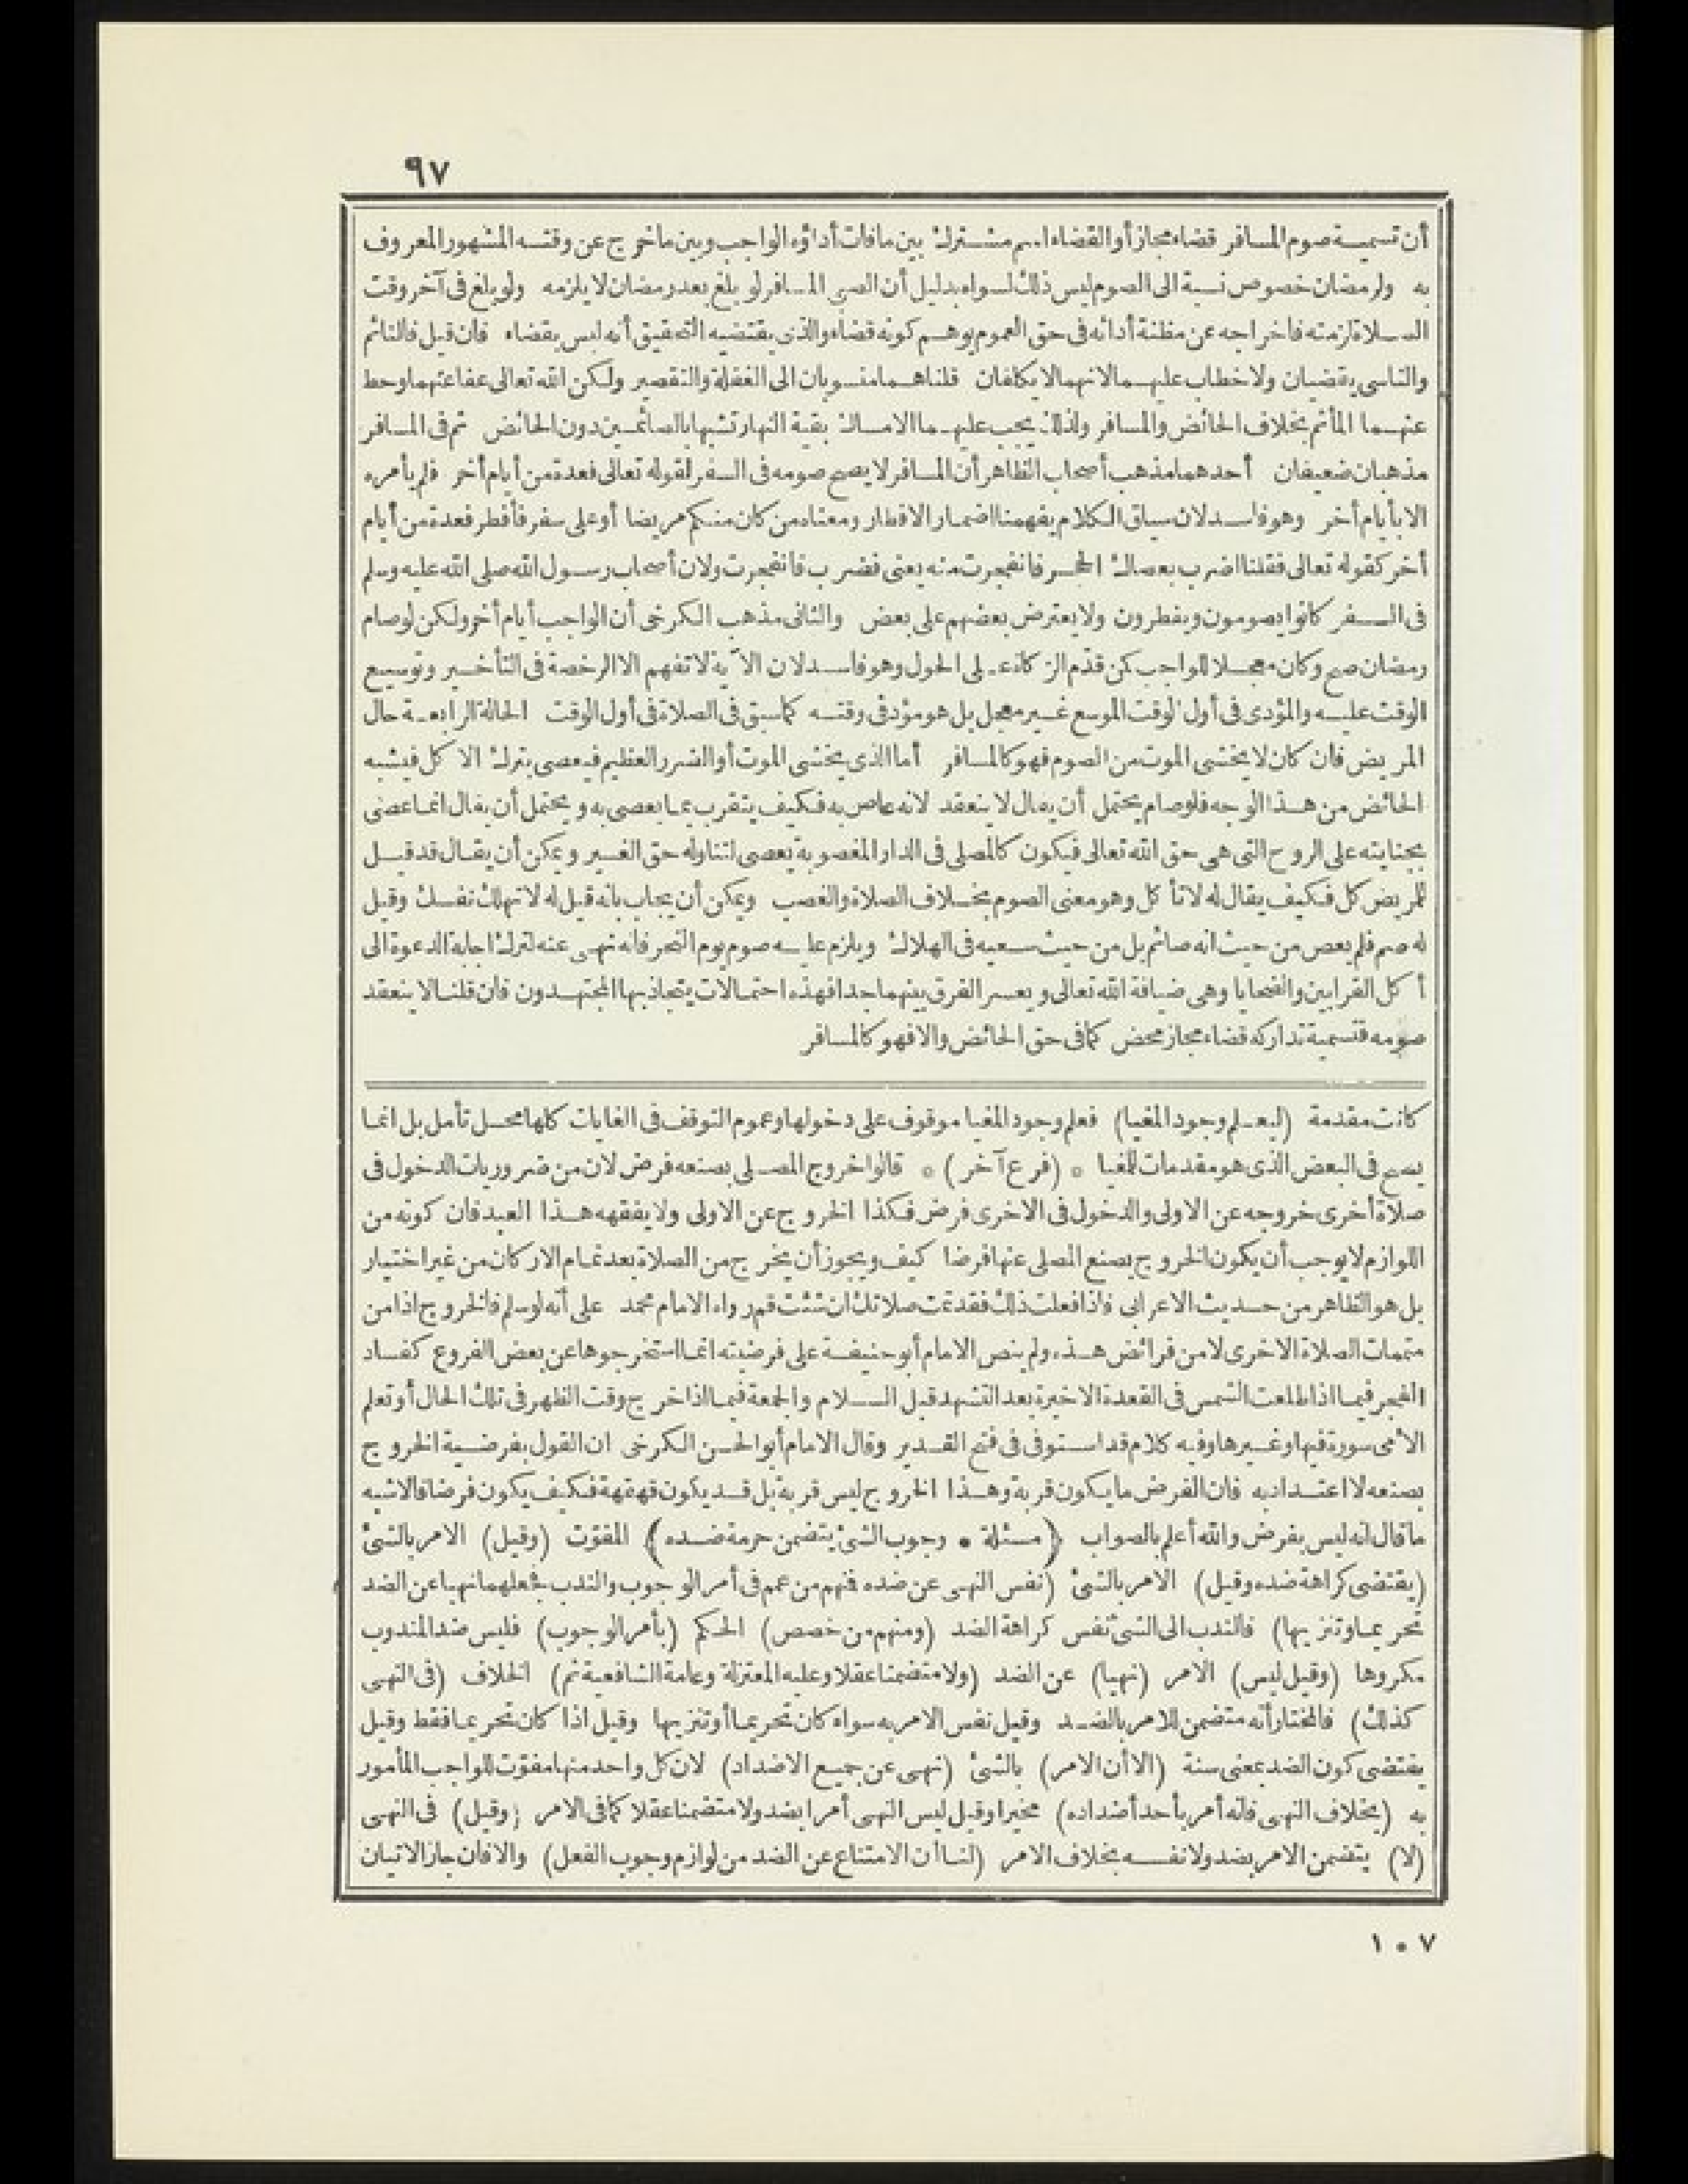 ٩٧
أن تسمية صوم المسافر قضاء مجاز أو القضاء اسم مشترك بين ما فات أداؤه الواجب وبين ما خرج عن وقته المشهور المعروف
به ولرمضان خصوص نسبة الى الصوم ليس ذلك لسواه بدليل أن الصبي المسافر لو بلغ بعد رمضان لا يلزمه ولو بلغ فى آخر وقت
الصلاة لزمته فاخراجه عن مظنة أدائه فى حق العموم يوهم كونه قضاء والذى يقتضيه التحقيق أنه ليس بقضاء فان قيل فالنائم
والناسى يقضيان ولا خطاب عليهما لانهما لا يكلفان قلنا هما منسوبان الى الغفلة والتقصير ولكن الله تعالى عفا عنهما وحط
عنهما المأثم بخلاف الحائض والمسافر ولذلك يجب عليهما الامساك بقية النهار تشبها بالصائمين دون الحائض ثم فى المسافر
مذهبان ضعيفان أحدهما مذهب أصحاب الظاهر أن المسافر لا يصح صومه فى السفر لقوله تعالى فعدة من أيام أخر فلم يأمره
الا بأيام أخر وهو فاسد لان سياق الكلام يفهمنا اضمار الافطار ومعناه من كان منكم مريضا أو على سفر فأفطر فعدة من أيام
أخر كقوله تعالى فقلنا اضرب بعصاك الحجر فانفجرت منه يعنى فضرب فانفجرت ولان أصحاب رسول الله صلى الله عليه وسلم
فى السفر كانوا يصومون ويفطرون ولا يعترض بعضهم على بعض والثانى مذهب الكرخى أن الواجب أيام أخر ولكن لو صام
رمضان صح وكان معجلا للواجب كمن قدّم الزكاة على الحول وهو فاسد لان الآية لا تفهم الا الرخصة فى التأخير وتوسيع
الوقت عليه والمؤدى فى أول الوقت الموسع غير معجل بل هو مؤد فى وقته كما سبق فى الصلاة فى أول الوقت الحالة الرابعة حال
المريض فان كان لا يخشى الموت من الصوم فهو كالمسافر أما الذى يخشى الموت أو الضرر العظيم فيعصى بترك الاكل فيشبه
الحائض من هذا الوجه فلو صام يحتمل أن يقال لا ينعقد لانه عاص به فكيف يتقرب بما يعصى به ويحتمل أن يقال انما عصى
بجنايته على الروح التى هى حق الله تعالى فيكون كالمصلى فى الدار المغصوبة يعصى لتناوله حق الغير ويمكن أن يقال قد قيل
للمريض كل فكيف يقال له لا تأكل وهو معنى الصوم بخلاف الصلاة والغصب ويمكن أن يجاب بانه قيل له لا تهلك نفسك وقيل
له صم فلم يعص من حيث انه صائم بل من حيث سعيه فى الهلاك ويلزم عليه صوم يوم النحر فانه نهى عنه لترك اجابة الدعوة الى
أكل القرابين والضحايا وهى ضيافة الله تعالى ويعسر الفرق بينهما جدا فهذه احتمالات يتجاذبها المجتهدون فان قلنا لا ينعقد
صومه فتسمية تداركه قضاء مجاز محض كما فى حق الحائض والا فهو كالمسافر
كانت مقدمة (ليعلم وجود المغيا) فعلم وجود المغيا موقوف على دخولها وعموم التوقف فى الغايات كلها محل تأمل بل انما
يصح فى البعض الذى هو مقدمات للمغيا * (فرع آخر) * قالوا خروج المصلى بصنعه فرض لان من ضروريات الدخول فى
صلاة أخرى خروجه عن الاولى والدخول فى الاخرى فرض فكذا الخروج عن الاولى ولا يفقهه هذا العبد فان كونه من
اللوازم لا يوجب أن يكون الخروج بصنع المصلى عنها فرضا كيف ويجوز أن يخرج من الصلاة بعد تمام الاركان من غير اختيار
بل هو الظاهر من حديث الاعرابى فاذا فعلت ذلك فقد تمت صلاتك ان شئت قم رواه الامام محمد على أنه لو سلم فالخروج اذا من
متممات الصلاة الاخرى لا من فرائض هذه ولم ينص الامام أبو حنيفة على فرضيته انما استخرجوها عن بعض الفروع كفساد
الفجر فيما اذا طلعت الشمس فى القعدة الاخيرة بعد التشهد قبل السلام والجمعة فيما اذا خرج وقت الظهر فى تلك الحال أو تعلم
الأمى سورة فيها وغيرها وفيه كلام قد استوفى فى فتح القدير وقال الامام أبو الحسن الكرخى ان القول بفرضية الخروج
بصنعه لا اعتداد به فان الفرض ما يكون قربة وهذا الخروج ليس قربة بل قد يكون قهقهة فكيف يكون فرضا فالاشبه
ما قال انه ليس بفرض والله أعلم بالصواب ﴿مسئلة * وجوب الشئ يتضمن حرمة ضده﴾ المفوّت (وقيل) الامر بالشئ
(يقتضى كراهة ضده وقيل) الامر بالشئ (نفس النهى عن ضده فمنهم من عمم فى أمر الوجوب والندب فجعلهما نهيا عن الضد
تحريما وتنزيها) فالندب الى الشئ نفس كراهة الضد (ومنهم من خصص) الحكم (بأمر الوجوب) فليس ضد المندوب
مكروها (وقيل ليس) الامر (نهيا) عن الضد (ولا متضمنا عقلا وعليه المعتزلة وعامة الشافعية ثم) الخلاف (فى النهى
كذلك) فالمختار أنه متضمن للامر بالضد وقيل نفس الامر به سواء كان تحريما أو تنزيها وقيل اذا كان تحريما فقط وقيل
يقتضى كون الضد بمعنى سنة (الا أن الامر) بالشئ (نهى عن جميع الاضداد) لان كل واحد منها مفوّت للواجب المأمور
به (بخلاف النهى فانه أمر بأحد أضداده) مخيرا وقيل ليس النهى أمرا بضد ولا متضمنا عقلا كما فى الامر (وقيل) فى النهى
(لا) يتضمن الامر بضد ولا نفسه بخلاف الامر (لنا أن الامتناع عن الضد من لوازم وجوب الفعل) والا فان جاز الاتيان
١٠٧